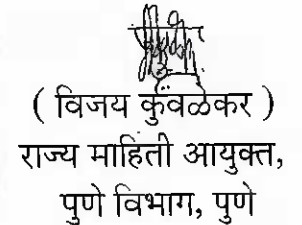 ( विजय कुवळेकर )
राज्य माहिती आयुक्त,
पुणे विभाग, पुणे